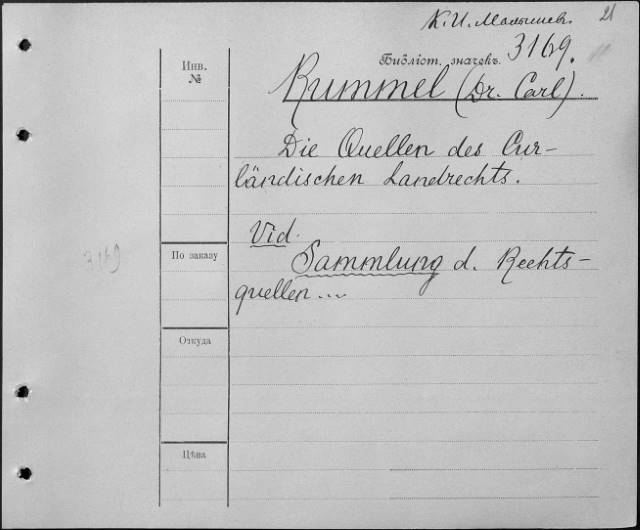 К. И. Малышев. 21
Библіот. значекъ 3169.
Инв.
№
Rummel (Dr. Carl).
Die Quellen des Cur-
ländischen Landrechts.
Vid.
Sammlung d. Rechts-
quellen...
3169
По заказу
Откуда
Цѣна